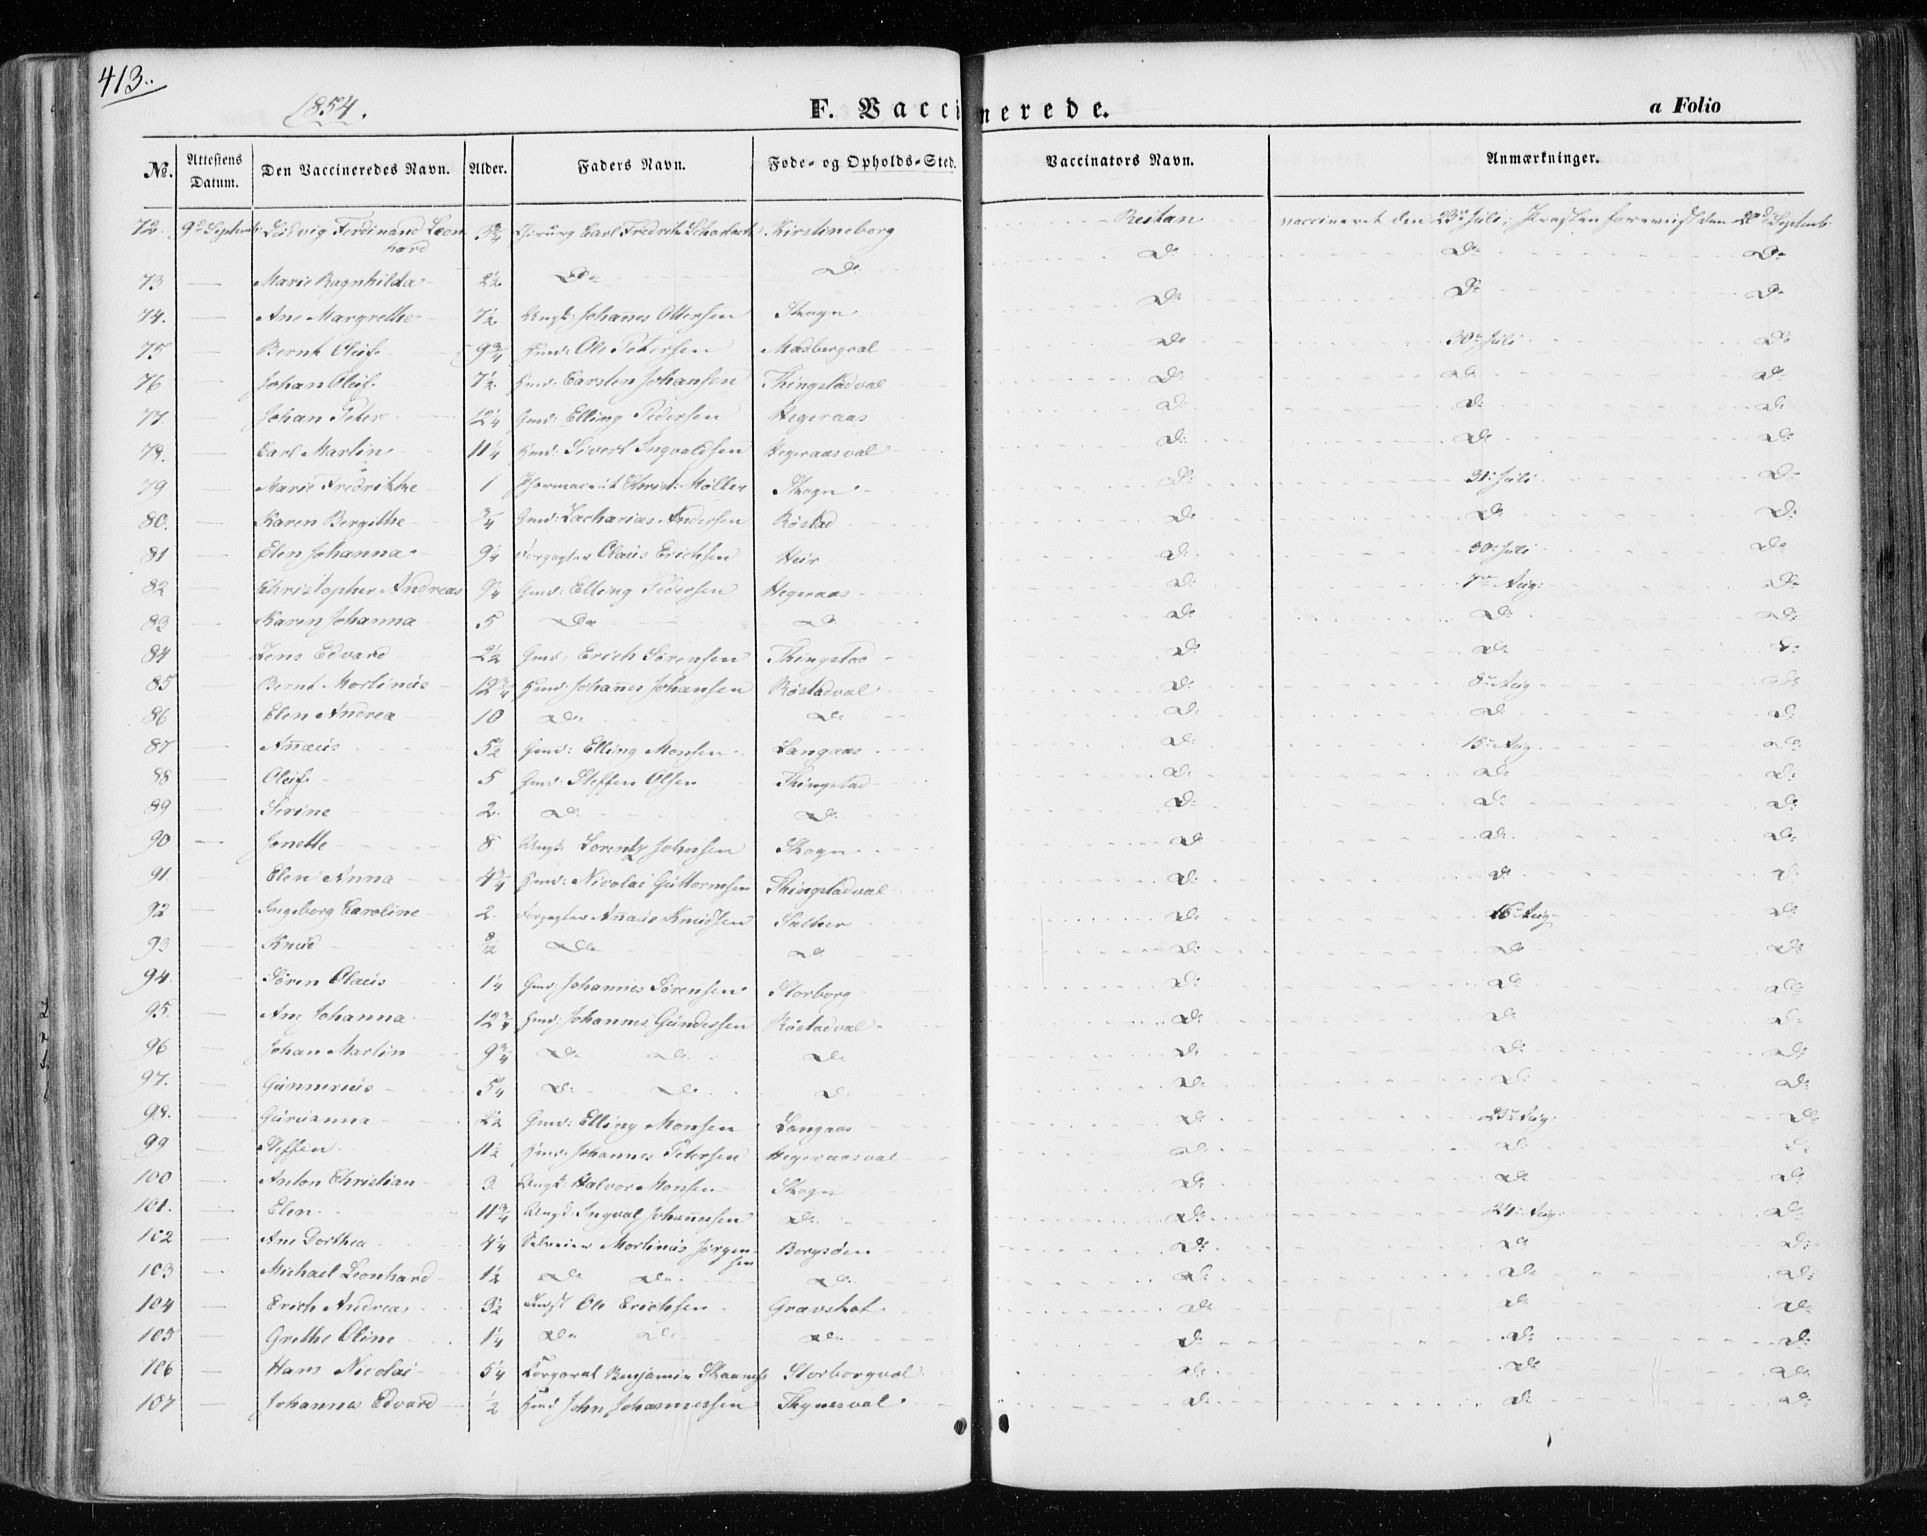 413.
1854.
F. Vaccinerede.
a Folio
No. Attestens Datum. Den Vaccineredes Navn. Alder. Faders Navn. Føde- og Opholds-Sted. Vaccinators Navn. Anmærkninger.
72. 9de Septemb. Ludvig Ferdinand Leonhard 5 3/4 Chirurg Carl Fredrik Schobach Kirstineborg Reitan vaccineret den 23de Juli; den 20de Septemb.
73 — Marie Ragnhilda 2 1/2 Do Do Do Do Do
74. — Ane Margrethe 7 1/2 Johannes Ottersen Skogn Do Do Do
75 — Bernt Oluf 9 3/4 Hmd: Ole Petersen Madbergval Do 30te Juli Do
76 — Johan Oluf 7 1/2 Hmd: Carsten Johansen Thingstadval Do Do Do
77. — Johan Peter 12 1/4 Gmd: Elling Pedersen Hegeraas Do Do Do
78. — Carl Martin 11 1/4 Hmd: Sivert Ingvaldsen Hegeraasval Do Do Do
79 — Marie Fredrikke 1 Pharmaceut Christ: Möller Skogn Do 31te Juli Do
80. — Karen Bergithe 3/4 Gmd: Zacharias Andersen Röstad Do Do Do
81 — Elen Johanna 9 1/4 Claus Erichsen Heir Do 30te Juli Do
82 — Christopher Andreas 9 1/4 Gmd: Elling Pedersen Hegeraas Do 7de Aug: Do
83 — Karen Johanna 5 Do Do Do Do Do
84 — Jens Edvard 2 1/2 Gmd: Erich Sørensen Thingstad Do Do Do
85 — Bernt Martinus 12 3/4 Hmd: Johannes Johansen Röstadval Do 8de Aug Do
86 — Elen Andrea 10 Do Do Do Do Do
87 — Annæus 5 1/2 Gmd: Elling Monsen Langaas Do 15de Aug. Do
88 — Oluf 5 Gmd: Steffen Olsen Thingstad Do Do Do
89 — Serine 2. Do Do Do Do Do
90 — Jonette 8 Lorentz Johnsen Skogn Do Do Do
91 — Elen Anna 4 3/4 Hmd: Nicolai Guttormsen Thingstadval Do Do Do
92 — Ingeborg Caroline 2. Annæus Knudsen Salther Do 16de Aug. Do
93 — Knud 8 1/2 Do Do Do Do Do
94. — Søren Olaus 1 1/4 Gmd: Johannes Sørensen Storborg Do Do Do
95. — Ane Johanna 12 3/4 Hmd: Johannes Gundersen Röstadval Do Do Do
96 — Johan Martin 9 3/4 Do Do Do Do Do Do
97. — Gunnerius 5 1/4 Do Do Do Do Do Do
98. — Gurianna 2 1/2 Gmd: Elling Monsen Langaas Do 23de Aug. Do
99 — Steffen 11 1/2 Hmd: Johannes Petersen Hegeraasval Do Do Do
100 — Anton Christian 3. Halvor Monsen Skogn Do Do Do
101. — Elen 11 3/4 Ingval Johannesen Do Do 24de Aug. Do
102 — Ane Dorthea 4 1/4 Selveier Martinus Jørgensen Borgsöen Do Do Do
103 — Michael Leonhard 1 1/2 Do Do Do Do Do Do
104 — Erich Andreas 3 1/2 Ole Erichsen Gravshot Do Do Do
105 — Grethe Oline 1 1/4 Do Do Do Do Do Do
106 — Hans Nicolai 5 1/4 Corporal Benjamin Storborgval Do Do Do
107 — Johannes Edvard 1/2 Hmd John Johannessen Thynesval Do Do Do